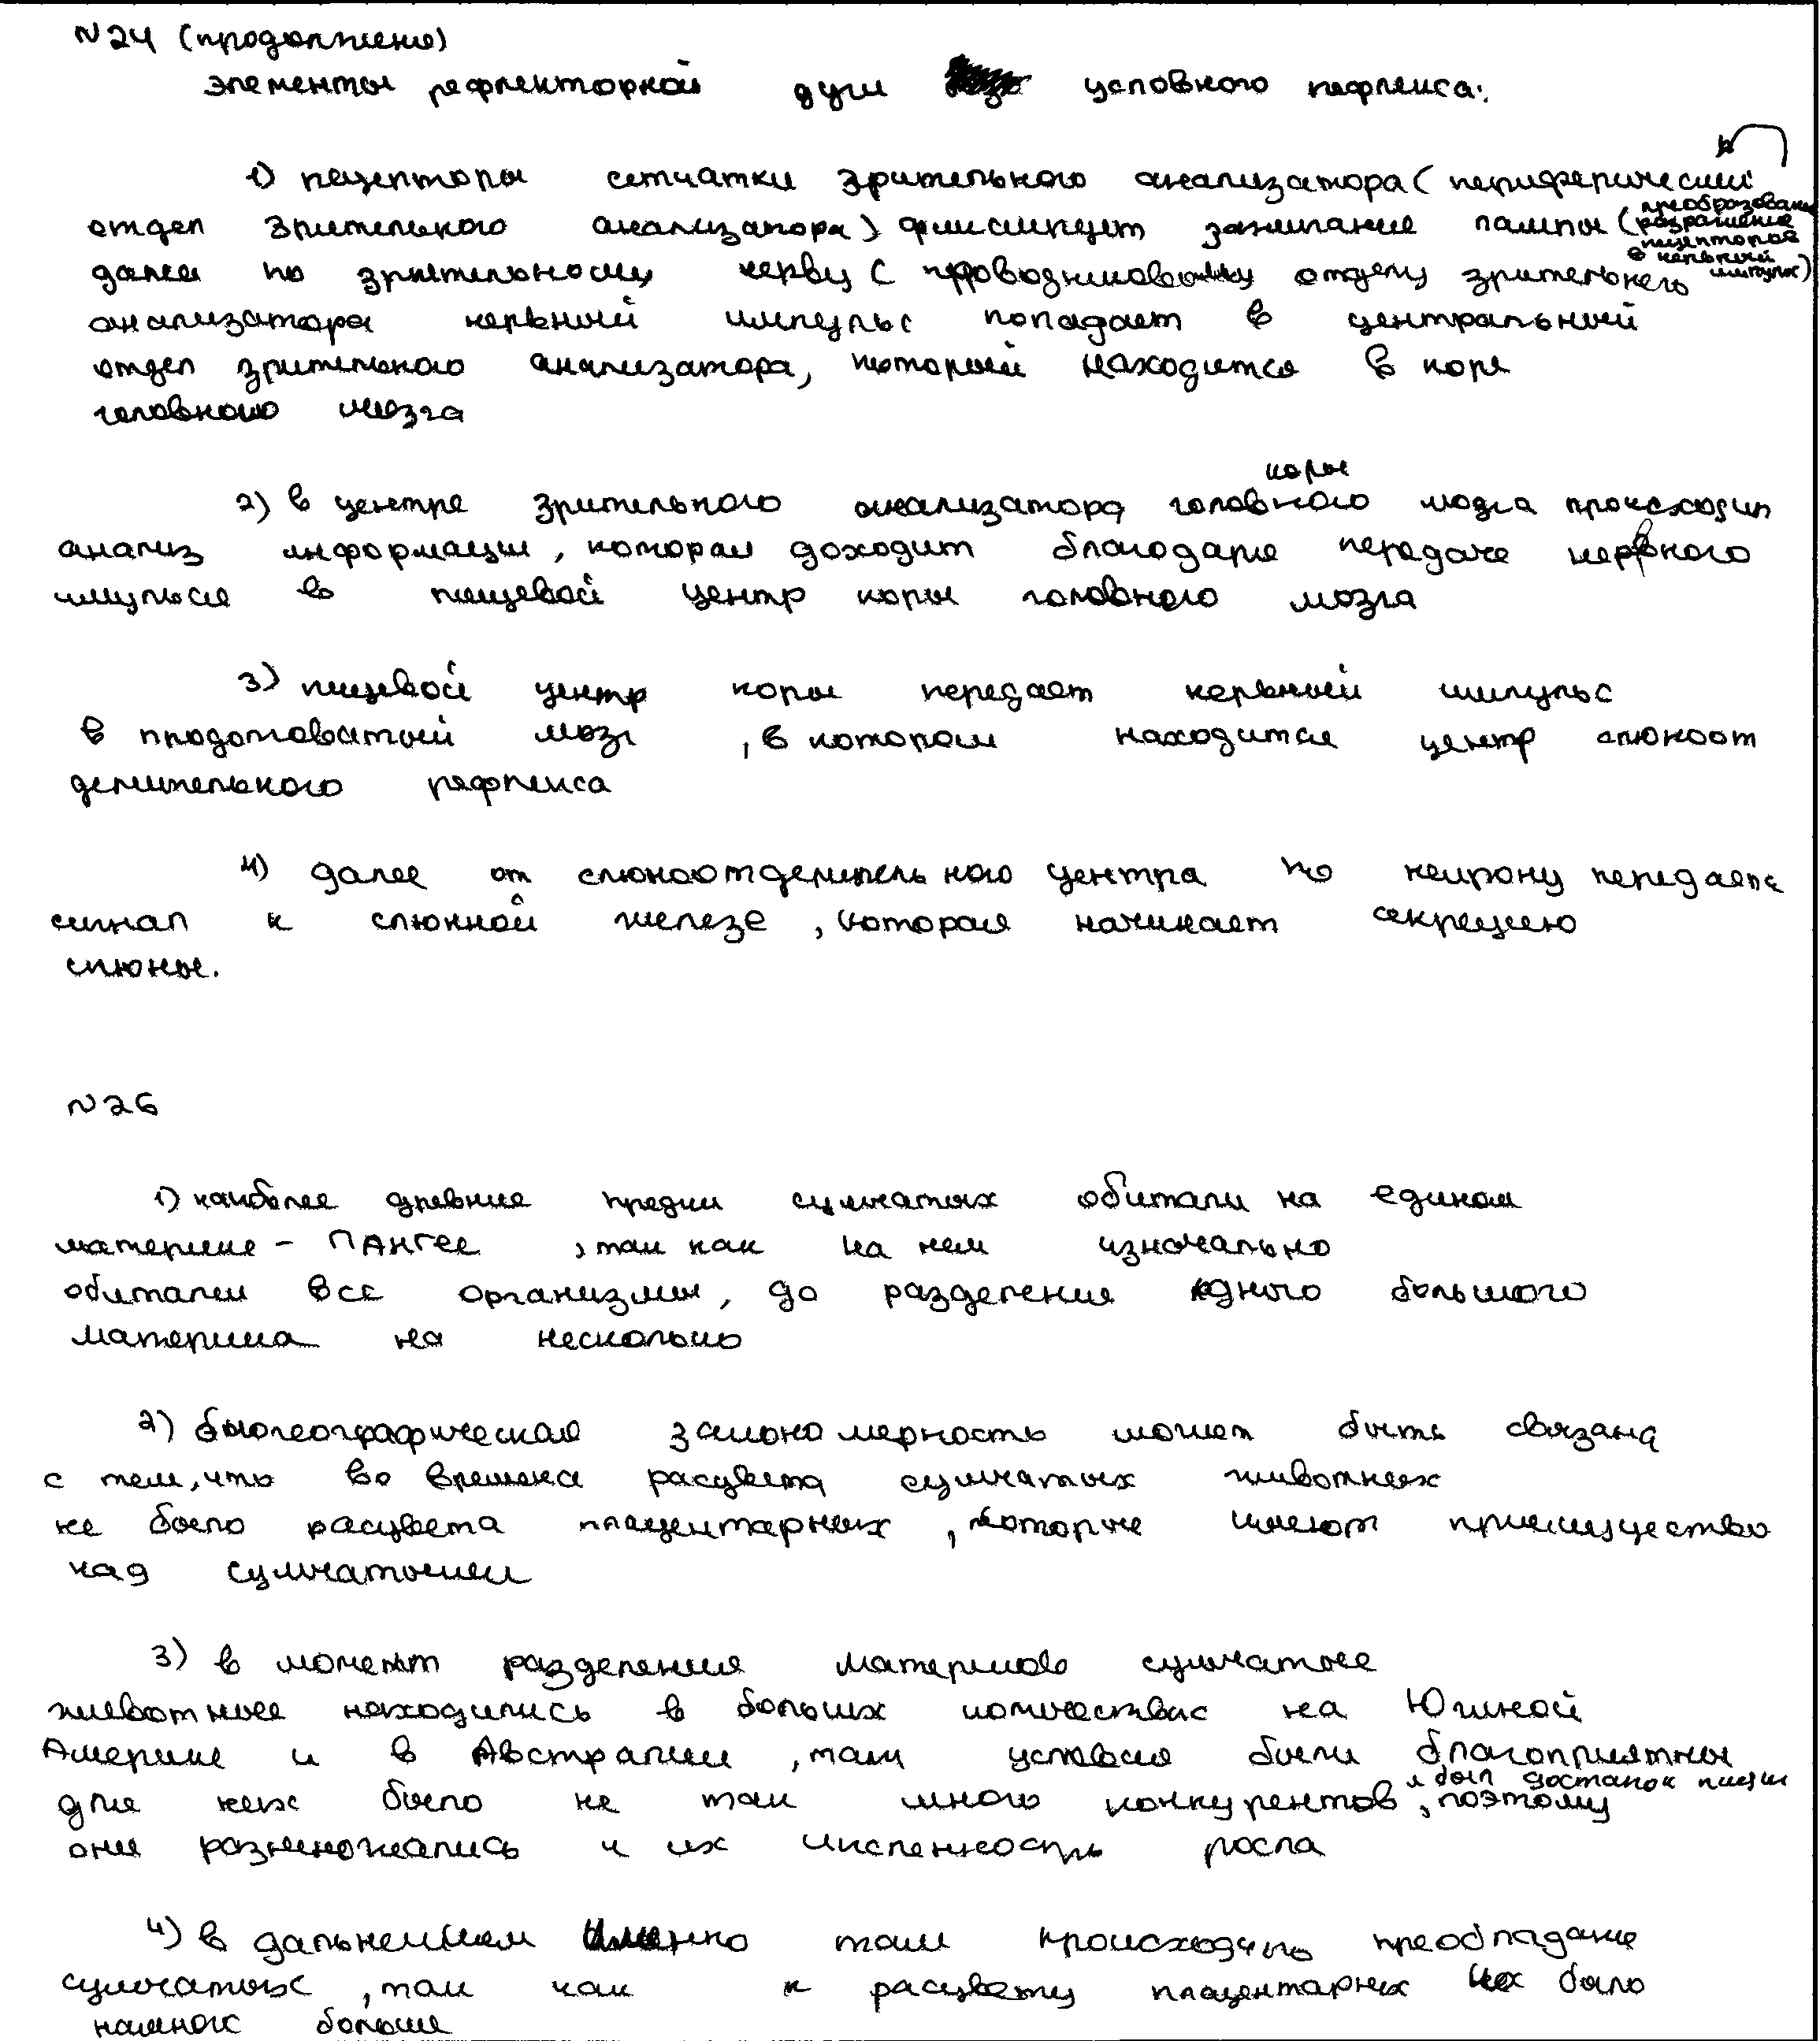 N24 (продолжение)
элементы рефлекторной дуги условного рефлекса:
1) рецепторы сетчатки зрительного анализатора (периферический
отдел зрительного анализатора) фиксирует зажигание лампы (преобразование
раздражение
рецепторов
в нервный
импульс)
далее по зрительному нерву (проводниковому отделу зрительного
анализатора нервный импульс попадает в центральный
отдел зрительного анализатора, который находится в коре
головного мозга
2) в центре зрительного анализатора коры головного мозга происходит
анализ информации, которая доходит благодаря передаче нервного
импульса в пищевой центр коры головного мозга
3) пищевой центр коры передает нервный импульс
в продолговатый мозг, в котором находится центр слюноот
делительного рефлекса
4) далее от слюноотделительного центра по нейрону передается
сигнал к слюнной железе, которая начинает секрецию
слюны.
N26
1) наиболее древние предки сумчатых обитали на едином
материке - ПАНГЕЕ, так как на нем изначально
обитали все организмы, до разделения одного большого
материка на несколько
2) биогеографическая закономерность может быть связана
с тем, что во времена расцвета сумчатых животных
не было расцвета плацентарных, которые имеют преимущество
над сумчатыми
3) в момент разделения материков сумчатые
животные находились в больших количествах на Южной
Америке и в Австралии, там условия были благоприятны
для них было не так много конкурентов и был достаток пищи, поэтому
они размножались и их численность росла
4) в дальнейшем именно там происходило преобладание
сумчатых, так как к расцвету плацентарных их было
намного больше